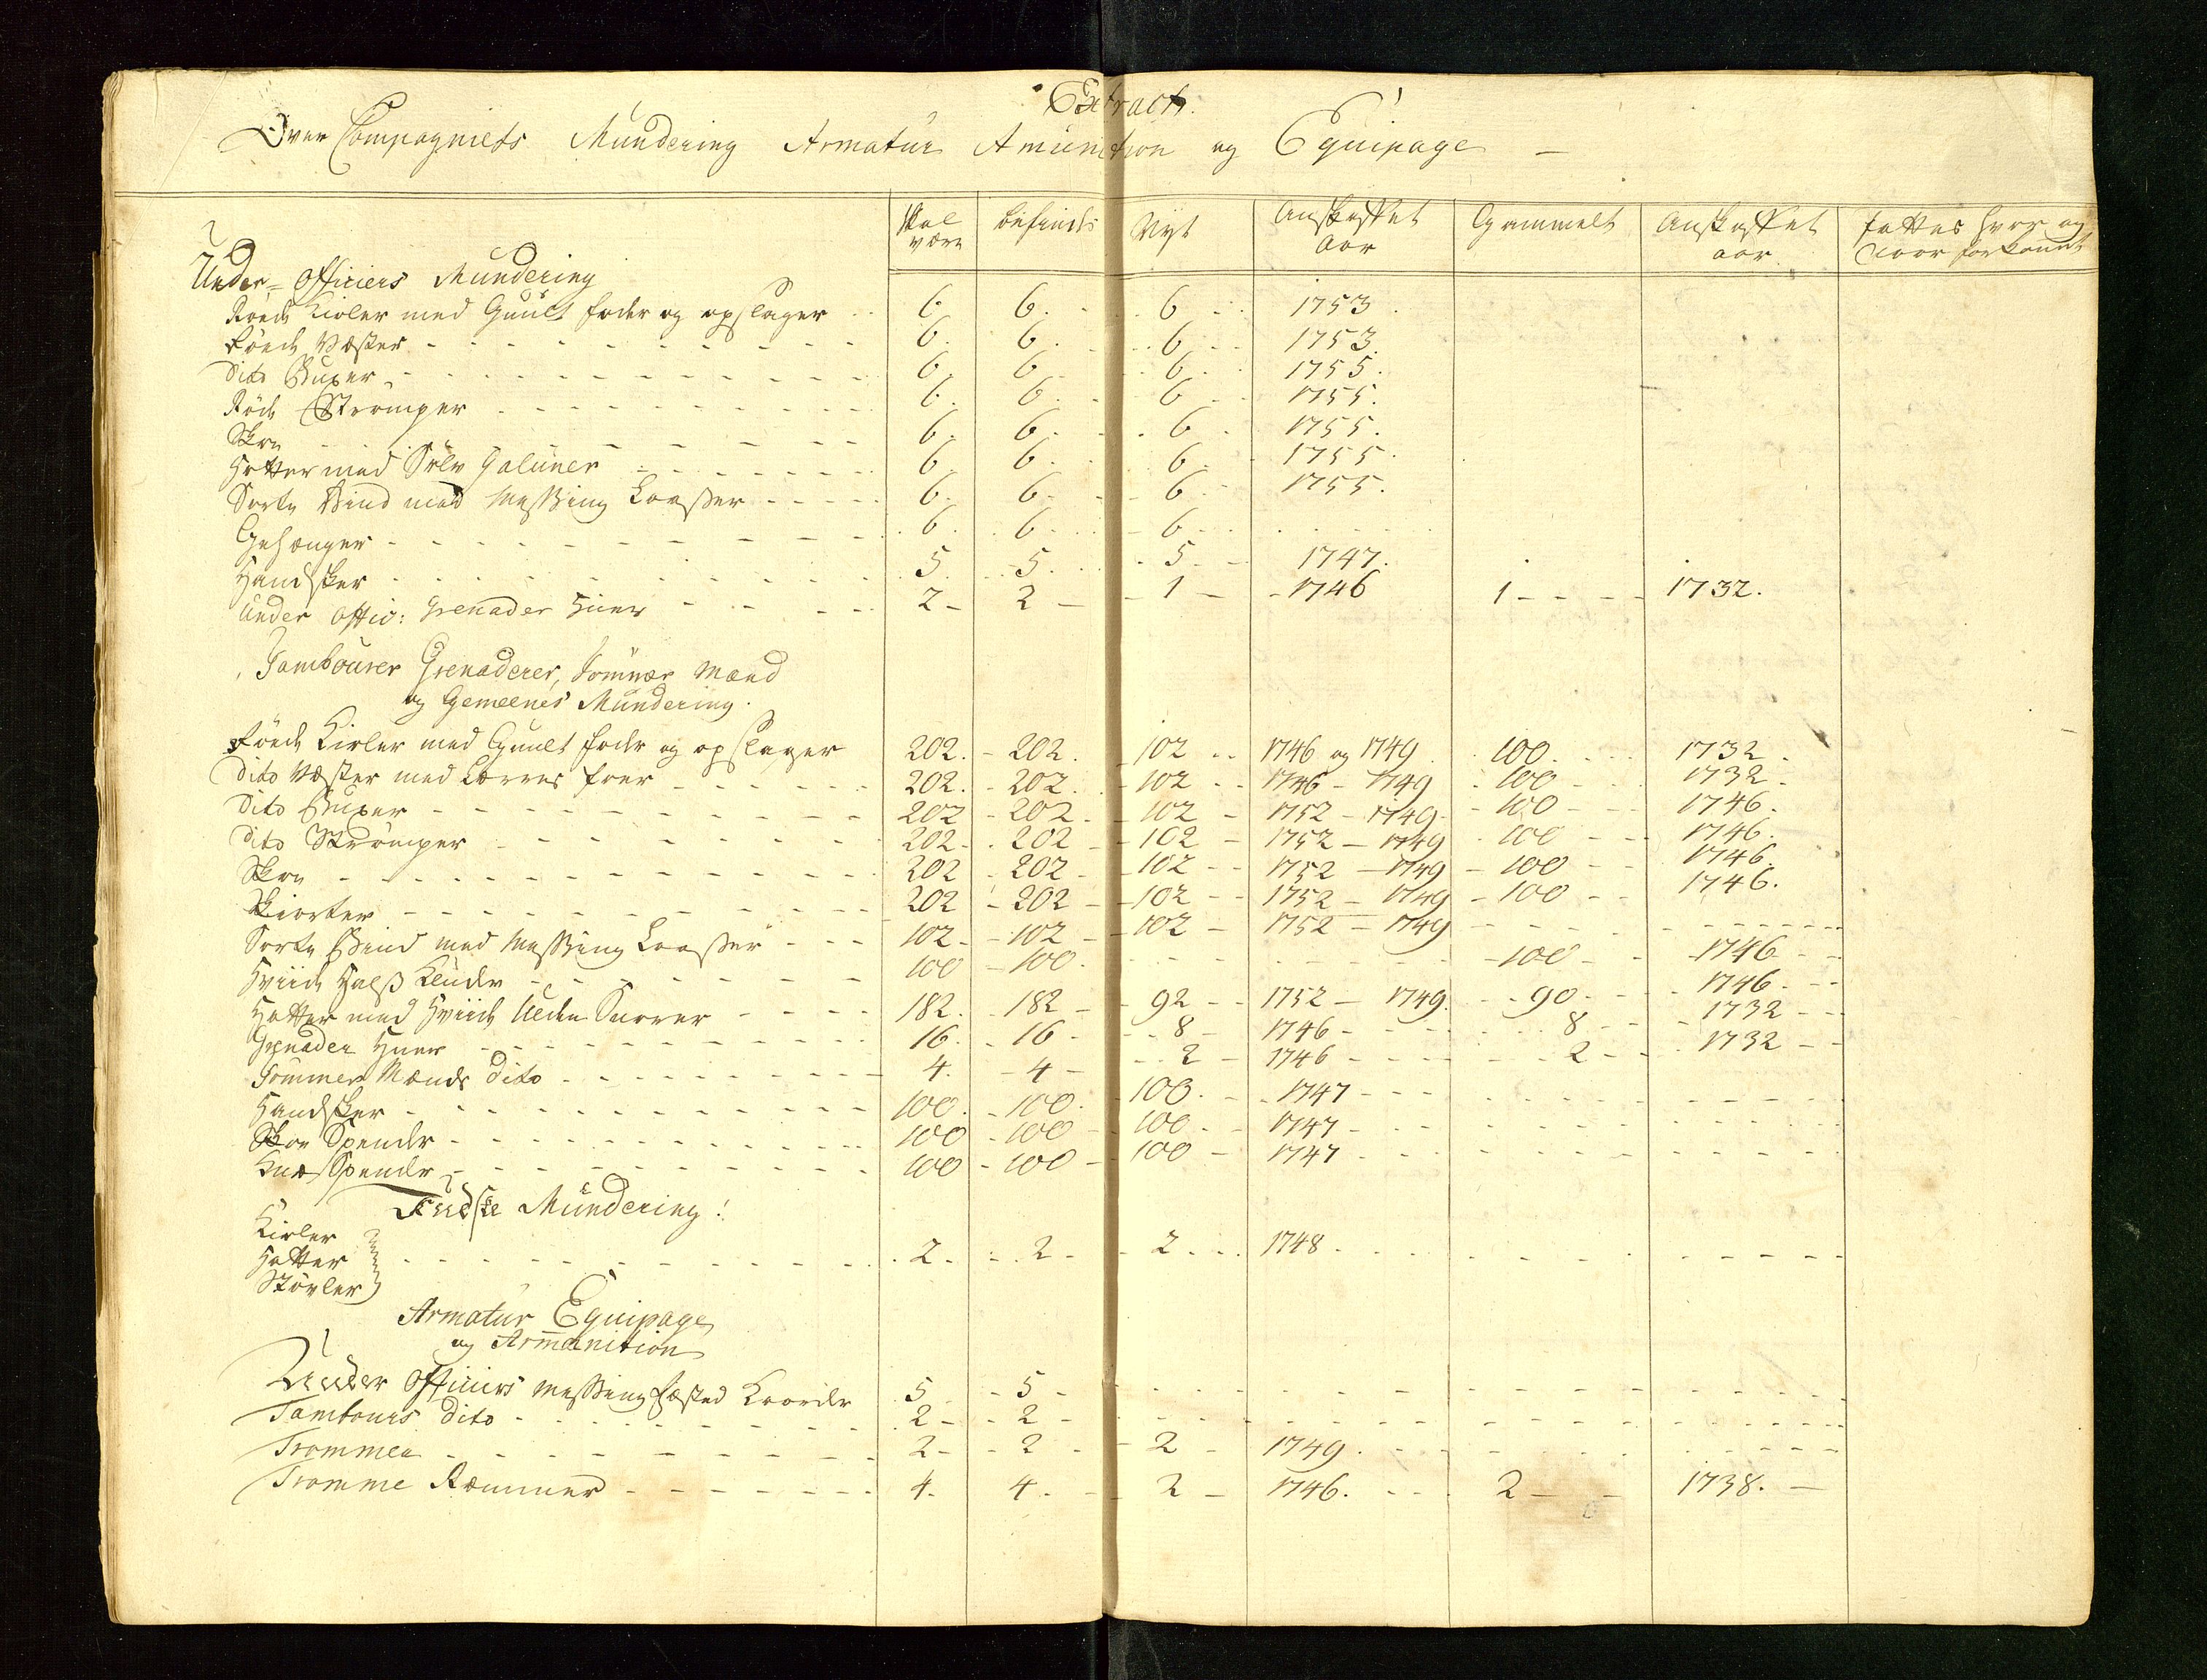 Extract.
Over Compagniets Mundering Armatur Amunition og Equipage
Skal være | befindes | Nyt | Anskaffet Aar | Gammelt | Anskaffet aar | fattes hvor og
Under=Officiers Mundering
Røede Kioler med Guult foder og opslager 6. 6. 6 1753.
Røede Væster 6. 6. 6 1753.
Dito Buxer 6. 6 6. 1755.
Røde Strømper 6. 6. 6 1755.
Skoe 6. 6. 6 1755.
Hatter med Sølv Galuner 6. 6. 6. 1755.
Sorte Bind med Messing Laaser 6. 6. 6 1755.
Gehænger 6. 6. 6
Handsker 5. 5. 5 1747.
Under Offic: Grenader Huer 2 2 1 1746 1 1732.
Tambourer Grenaderer, Tømmer Mænd
og Gemeenes Mundering.
Røede Kioler med Guult foder og opslager 202. 202. 102 1746 og 1749 100. 1732.
Dito Væster med Lærres foer 202. 202. 102 1746 - 1749 100 1732.
Dito Buxer 202 202. 102 1752 - 1749 100 1746.
Dito Strømper 202. 202 102 1752 - 1749 100 1746.
Skoe 202 202 102 1752 - 1749 100 1746.
Skiorter 202 202 102 1752 - 1749 100 1746.
Sorte Bind med Messing Laaser 102. 102 102 1752 - 1749
Hviide Halß Klude 100 100. 100 1746
Hatter med Hviide Snorer 182. 182 92 1752 - 1749. 90. 1746.
Grenader Huer 16. 16 8 1746 8 1732
Tømmer Mænds dito 4. 4 2 1746 2 1732
Handsker 100. 100. 100. 1747
Skoe Spender 100 100 100 1747
Knæ Spender 100 100 100 1747
Mundering.
Kioler
Hatter 2. 2 2 1748.
Støvler
Armatur Equipage
og Ammunition
Under Officiers Messing fæsted Kaarder 5 5
Tambours dito 2 2
Trommer 2 2 2 1749.
Tromme Remmer 4. 4. 2 1746. 2 1738.